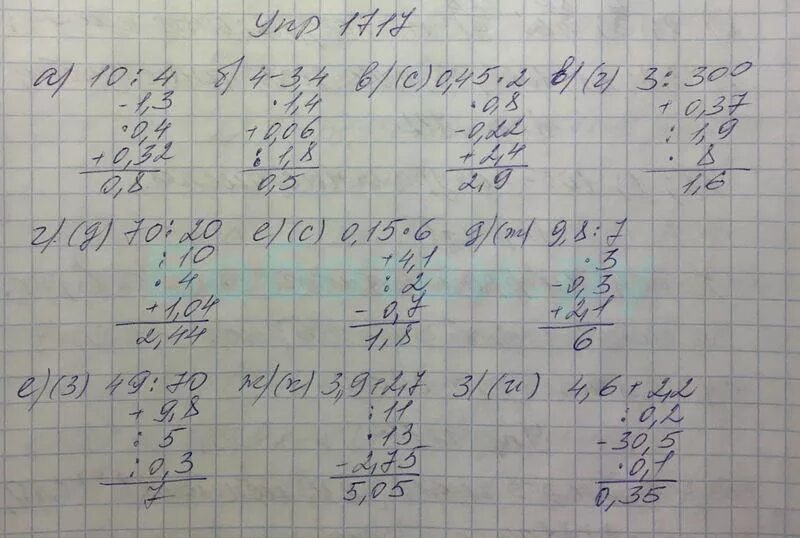 Упр 1717
а) 10 : 4   б) 4 - 3,4   в) (с) 0,45 · 2   в) (г) 3 : 300
- 1,3   · 1,4   · 0,8   + 0,37
· 0,4   + 0,06   - 0,22   : 1,9
+ 0,32   : 1,8   + 2,4   · 8
0,8   0,5   2,9   1,6
г) (д) 70 : 20   е) (с) 0,15 · 6   д) (ж) 9,8 : 7
: 10   + 4,1   · 3
· 4   : 2   - 0,3
+ 1,04   - 0,7   + 2,1
2,44   1,8   6
е) (з) 49 : 70   ж) (к) 3,9 + 2,7   з) (и) 4,6 + 2,2
+ 9,8   : 11   : 0,2
: 5   · 13   - 30,5
: 0,3   - 2,75   · 0,1
7   5,05   0,35